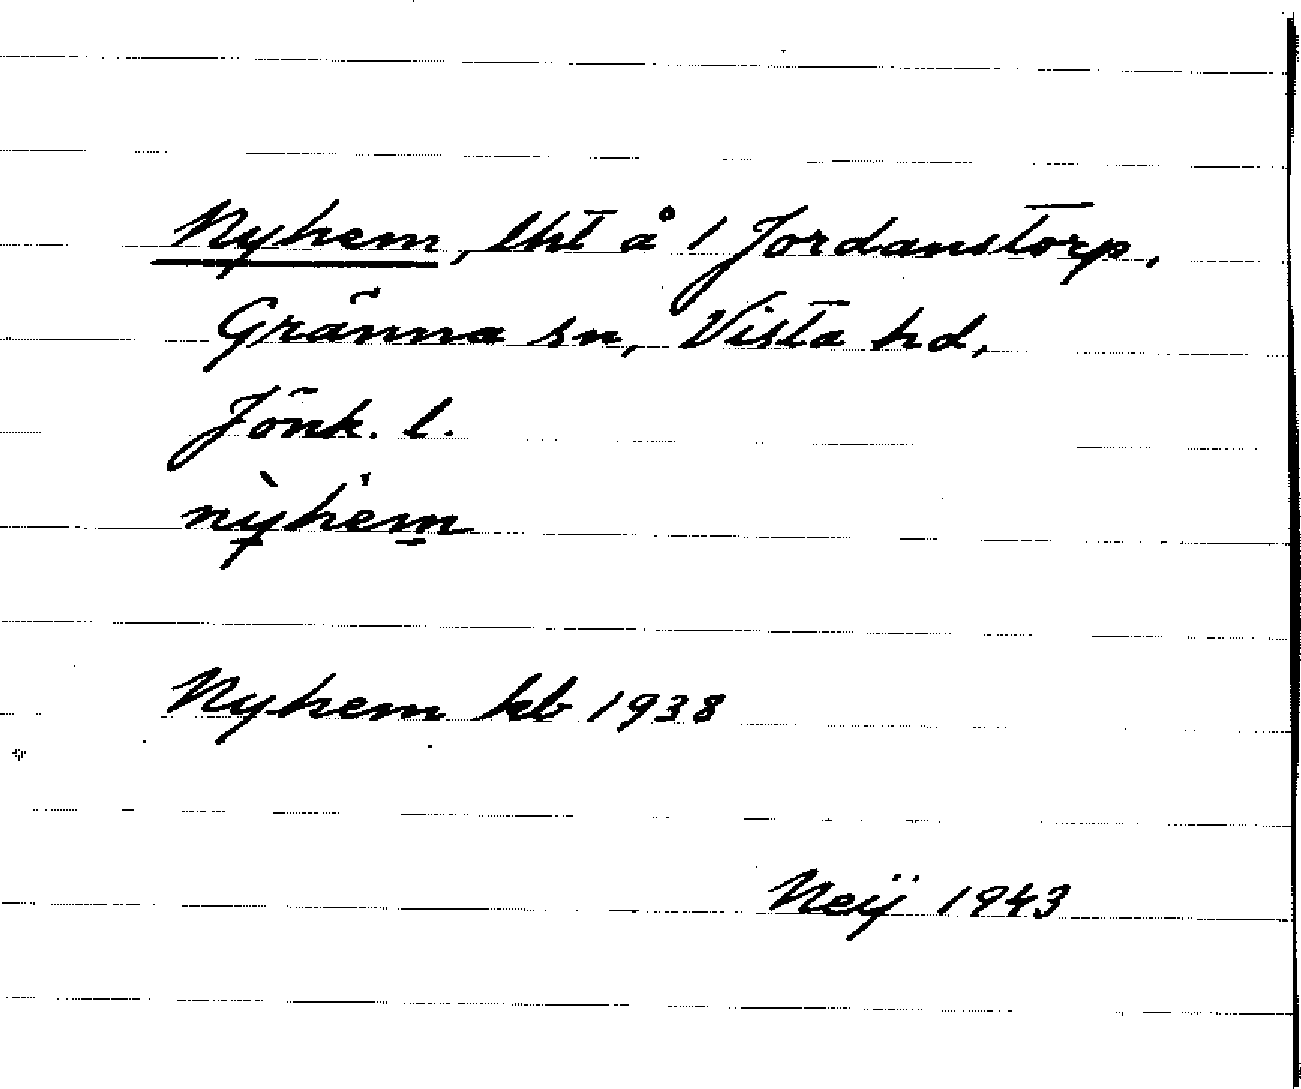 Nyhem, lht å 1 Jordanstorp,
Gränna sn, Vista hd,
Jönk. l.
nỳhem
Nyhem kb 1938
Neij 1943